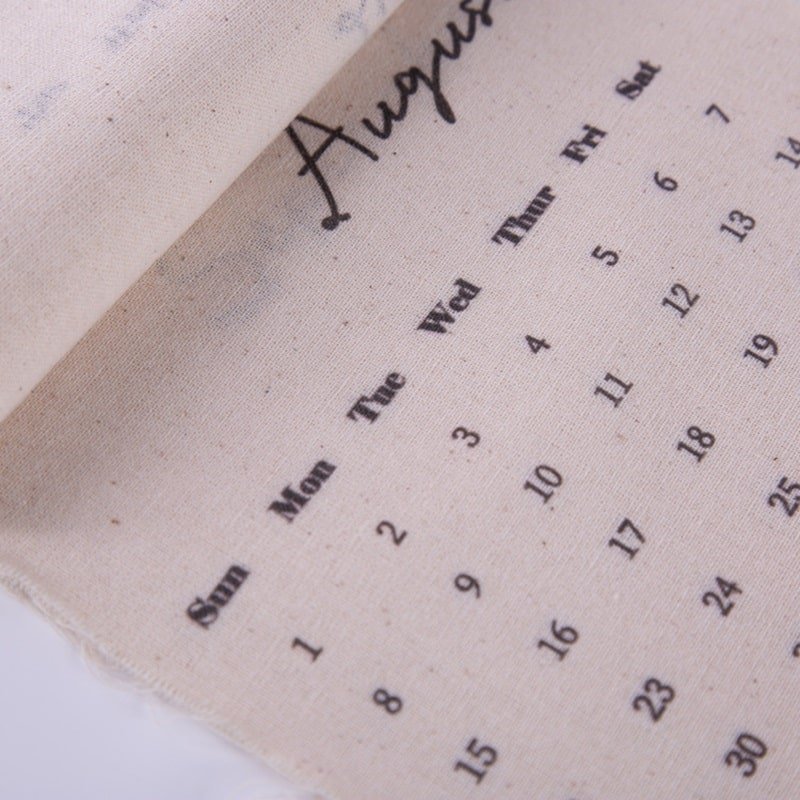 Augus
Sun Mon Tue Wed Thur Fri Sat
1 2 3 4 5 6 7
8 9 10 11 12 13 14
15 16 17 18 19
23 24 25
30